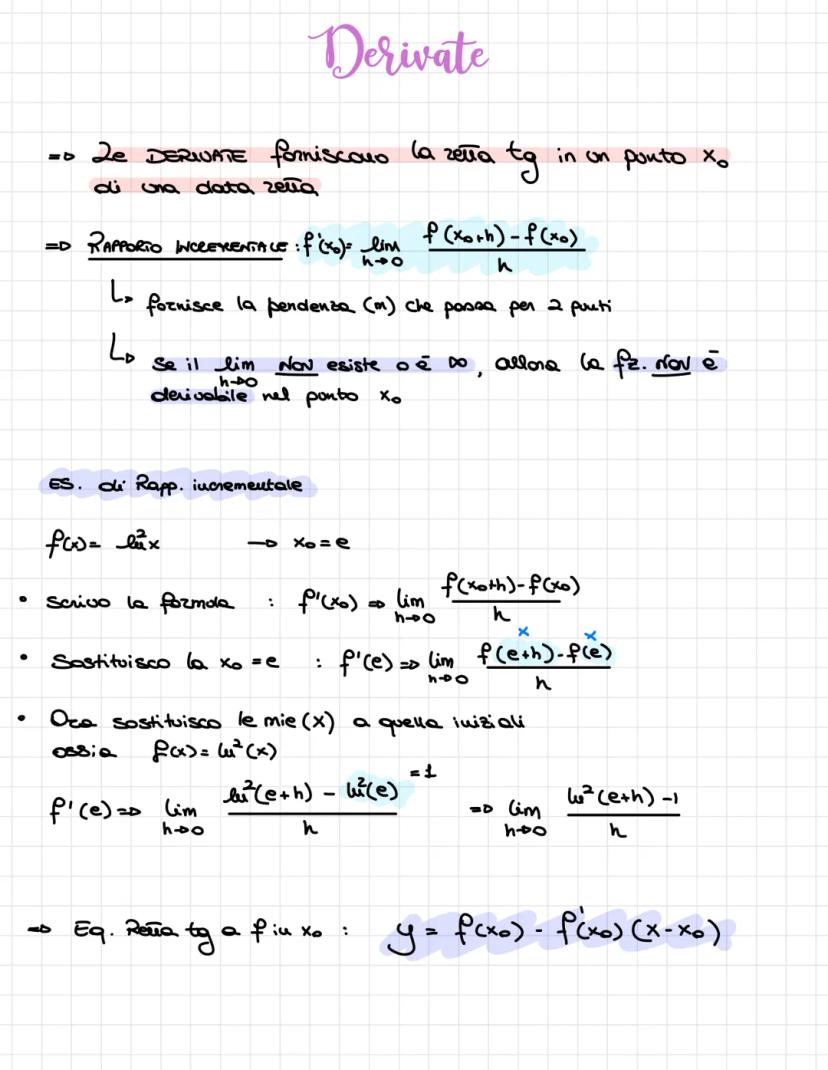 Derivate
=> Le DERIVATE forniscono la retta tg in un punto x₀
di una data retta
=> RAPPORTO INCREMENTALE : f'(x₀)= lim h→0 f(x₀+h)-f(x₀) / h
↳ fornisce la pendenza (m) che passa per 2 punti
↳ Se il lim h→0 NON esiste o è ∞, allora la fz. NON è
derivabile nel punto x₀
ES. di Rapp. incrementale
f(x)= ln²x → x₀=e
• scrivo la formola : f'(x₀) => lim h→0 f(x₀+h)-f(x₀) / h
x x
• Sostituisco la x₀=e : f'(e) => lim h→0 f(e+h)-f(e) / h
• Ora sostituisco le mie (x) a quella iniziali
ossia f(x)= ln²(x)
f'(e) => lim h→0 ln²(e+h) - ln²(e) / h =1 => lim h→0 ln²(e+h) -1 / h
=> Eq. Retta tg a f in x₀ : y = f(x₀) - f'(x₀) (x-x₀)